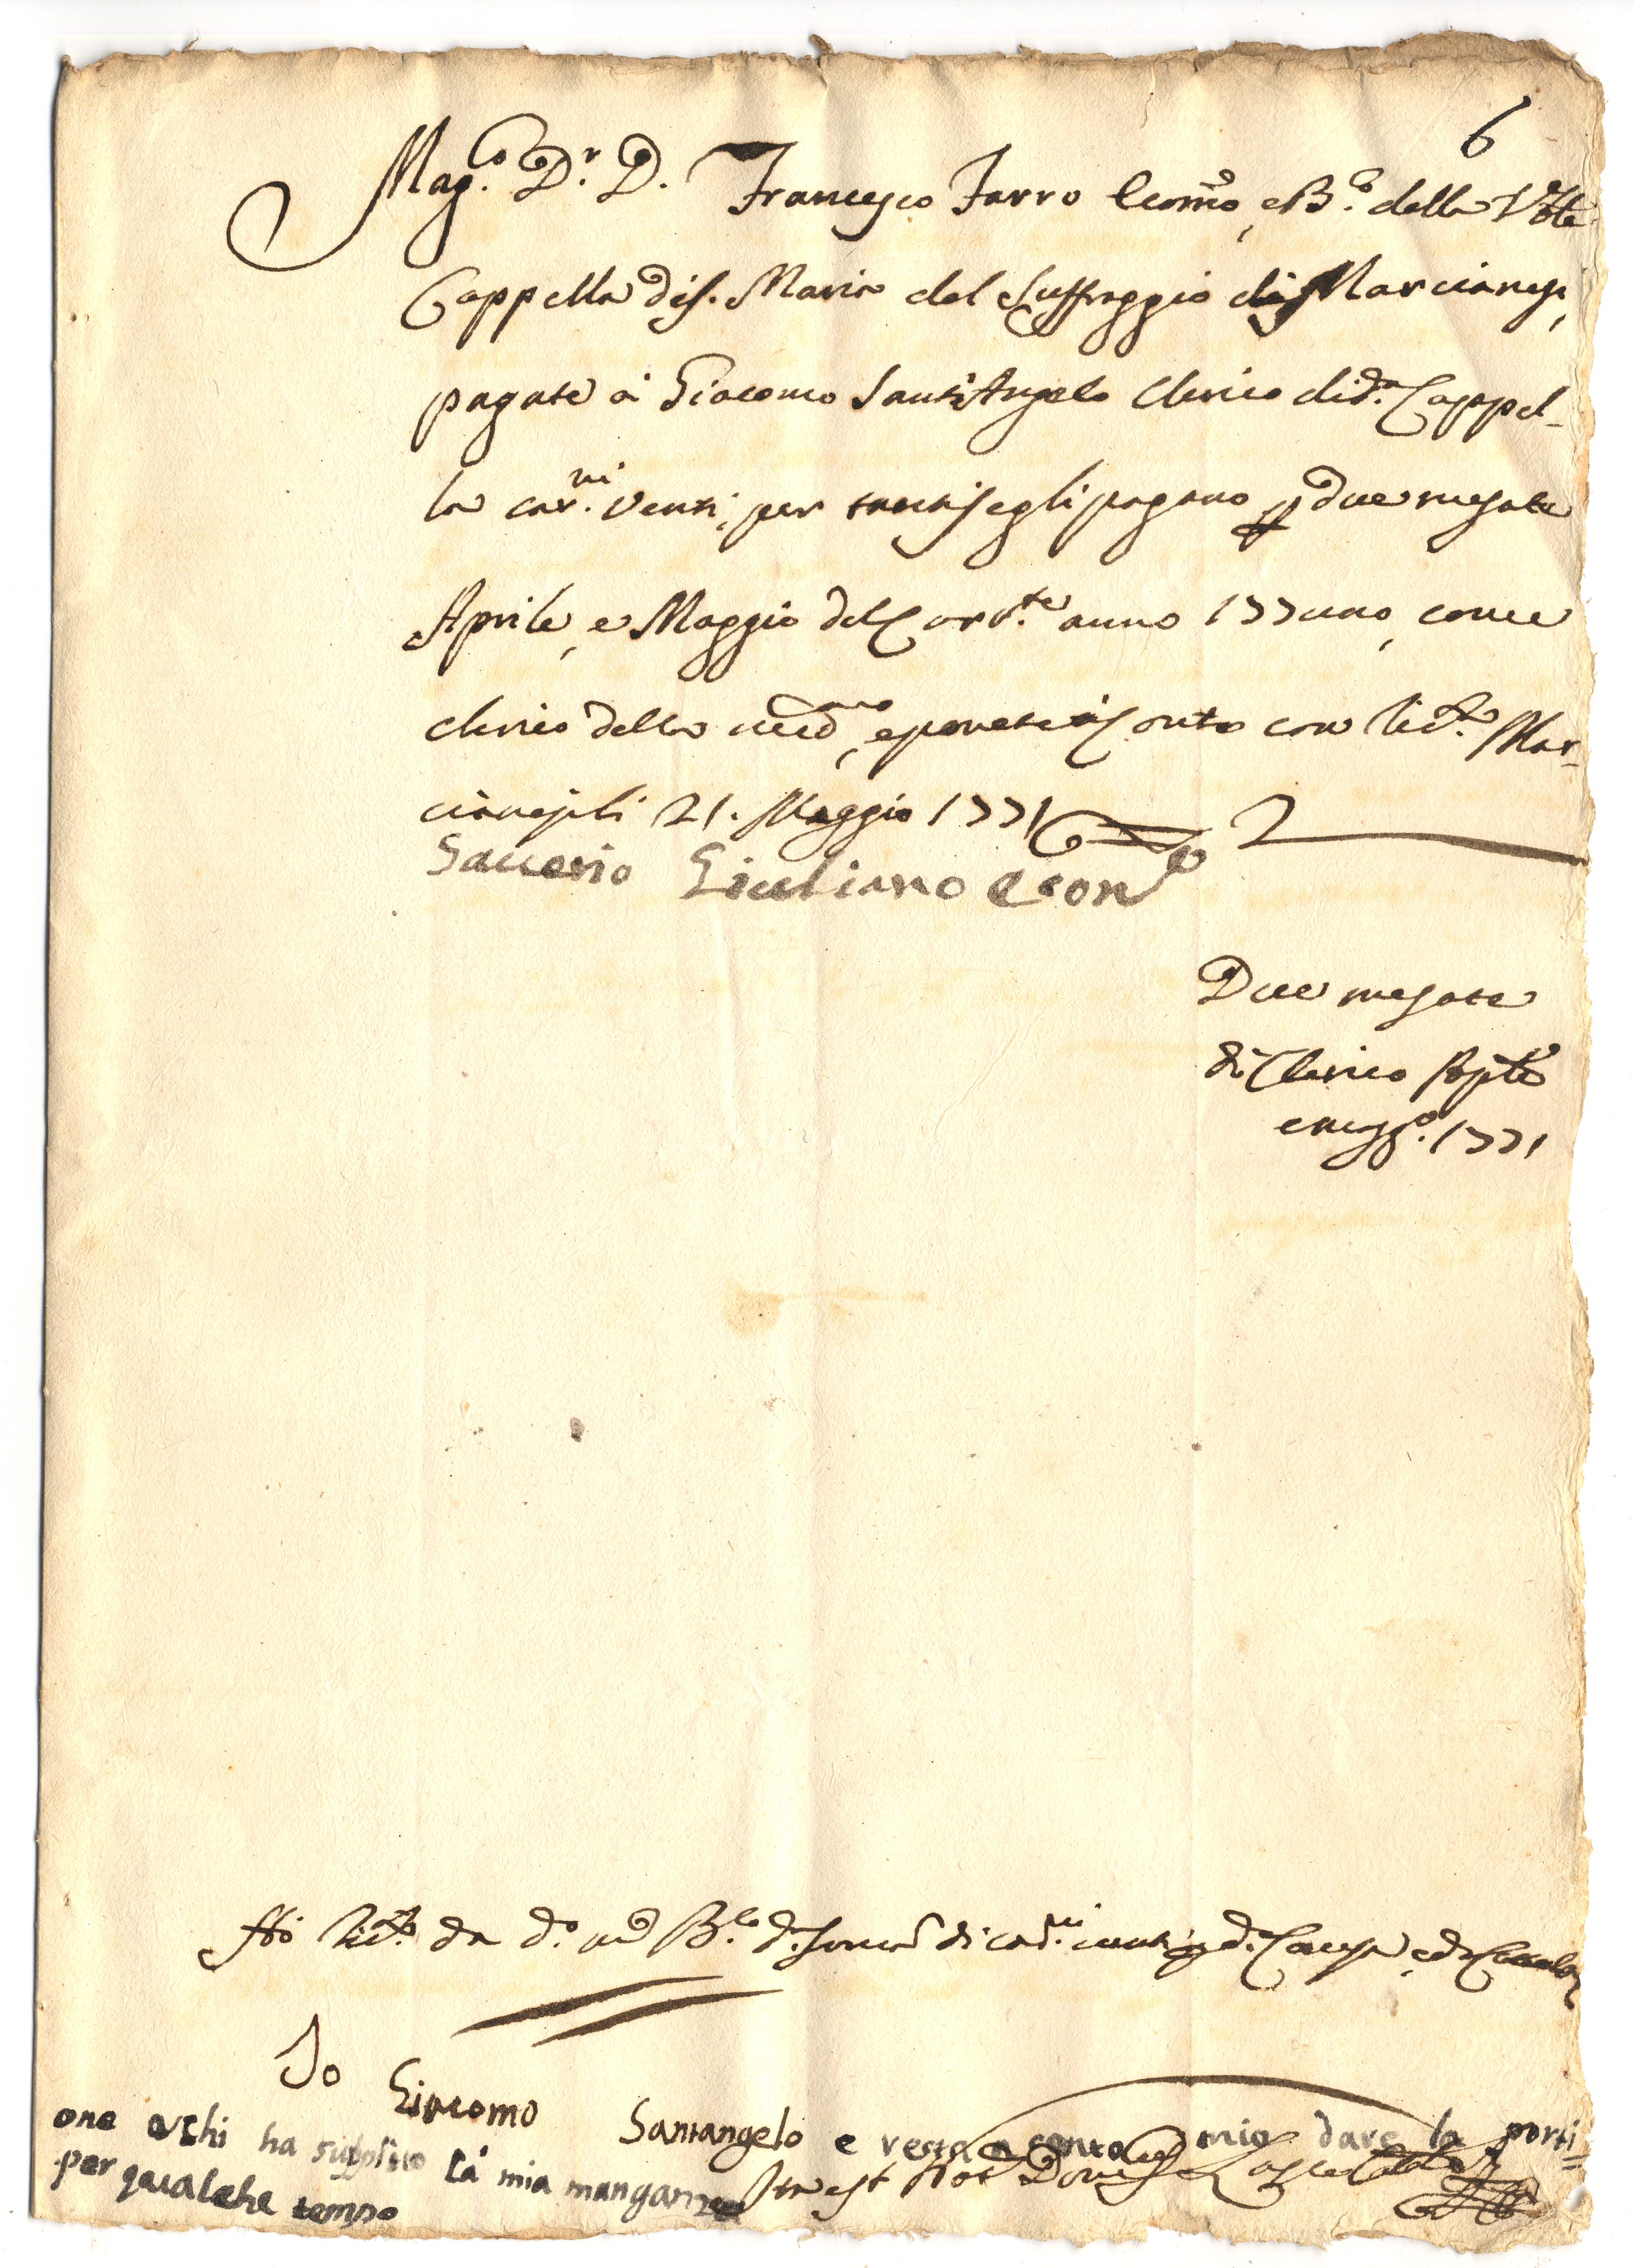 6
Mag.co D.r D. Francesco Farro Econ.mo, e B.o della V.le
Cappella di S. Maria del Suffraggio di Marcianesi,
pagate à Giacomo Sant'Angelo Clerico di d.a Cappel-
la car.ni venti, per tanti se gli pagano p due mesate
Aprile, e Maggio del Corr.te anno 177uno, come
clerico della med.ma, e ponete à Conto con ric.ta Mar-
cianesi li 21. Maggio 1771
Saverio Giuliano Econ.o
Due mesate
di Clerico
e magg.o 1771
Hò ric.to da d.o B.o di car.ni venti
Io Giacomo Santangelo e resta a conto mio dare la porti=
one a chi ha supplito la mia manganza
per qualche tempo
Ita est Not.